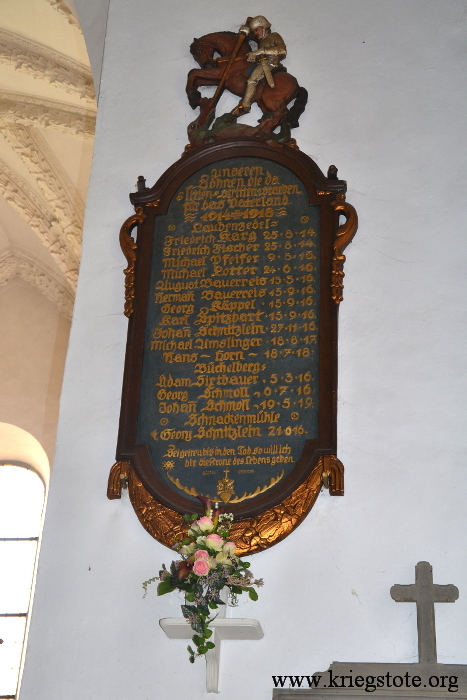 Unseren
Söhnen die da
für das Vaterland
1914 - 1918
Laudenzedel
Friedrich Karg 25·8·14.
Friedrich Fischer 25·8·14.
Michael Pfeifer 9·5·15.
Michael Rotter 24·6·16.
August Bauerreis 15·5·16.
Herman Bauerreis 15·9·16.
Georg Käppel 15·9·16.
Karl Spitzbart 15·9·16.
Johañ Schnitzlein 27·11·16.
Michael Amslinger 18·8·17.
Hans - Horn - 18·7·18.
Büchelberg:
Adam Sixtbauer 5·3·16.
Georg Schmoll 6·7·16.
Johañ Schmoll 19·5·19.
Schnackenmühle
Georg Schnitzlein 21·6·16.
Sei getreu bis in den Tod so will ich
dir die Krone des Lebens geben
www.kriegstote.org